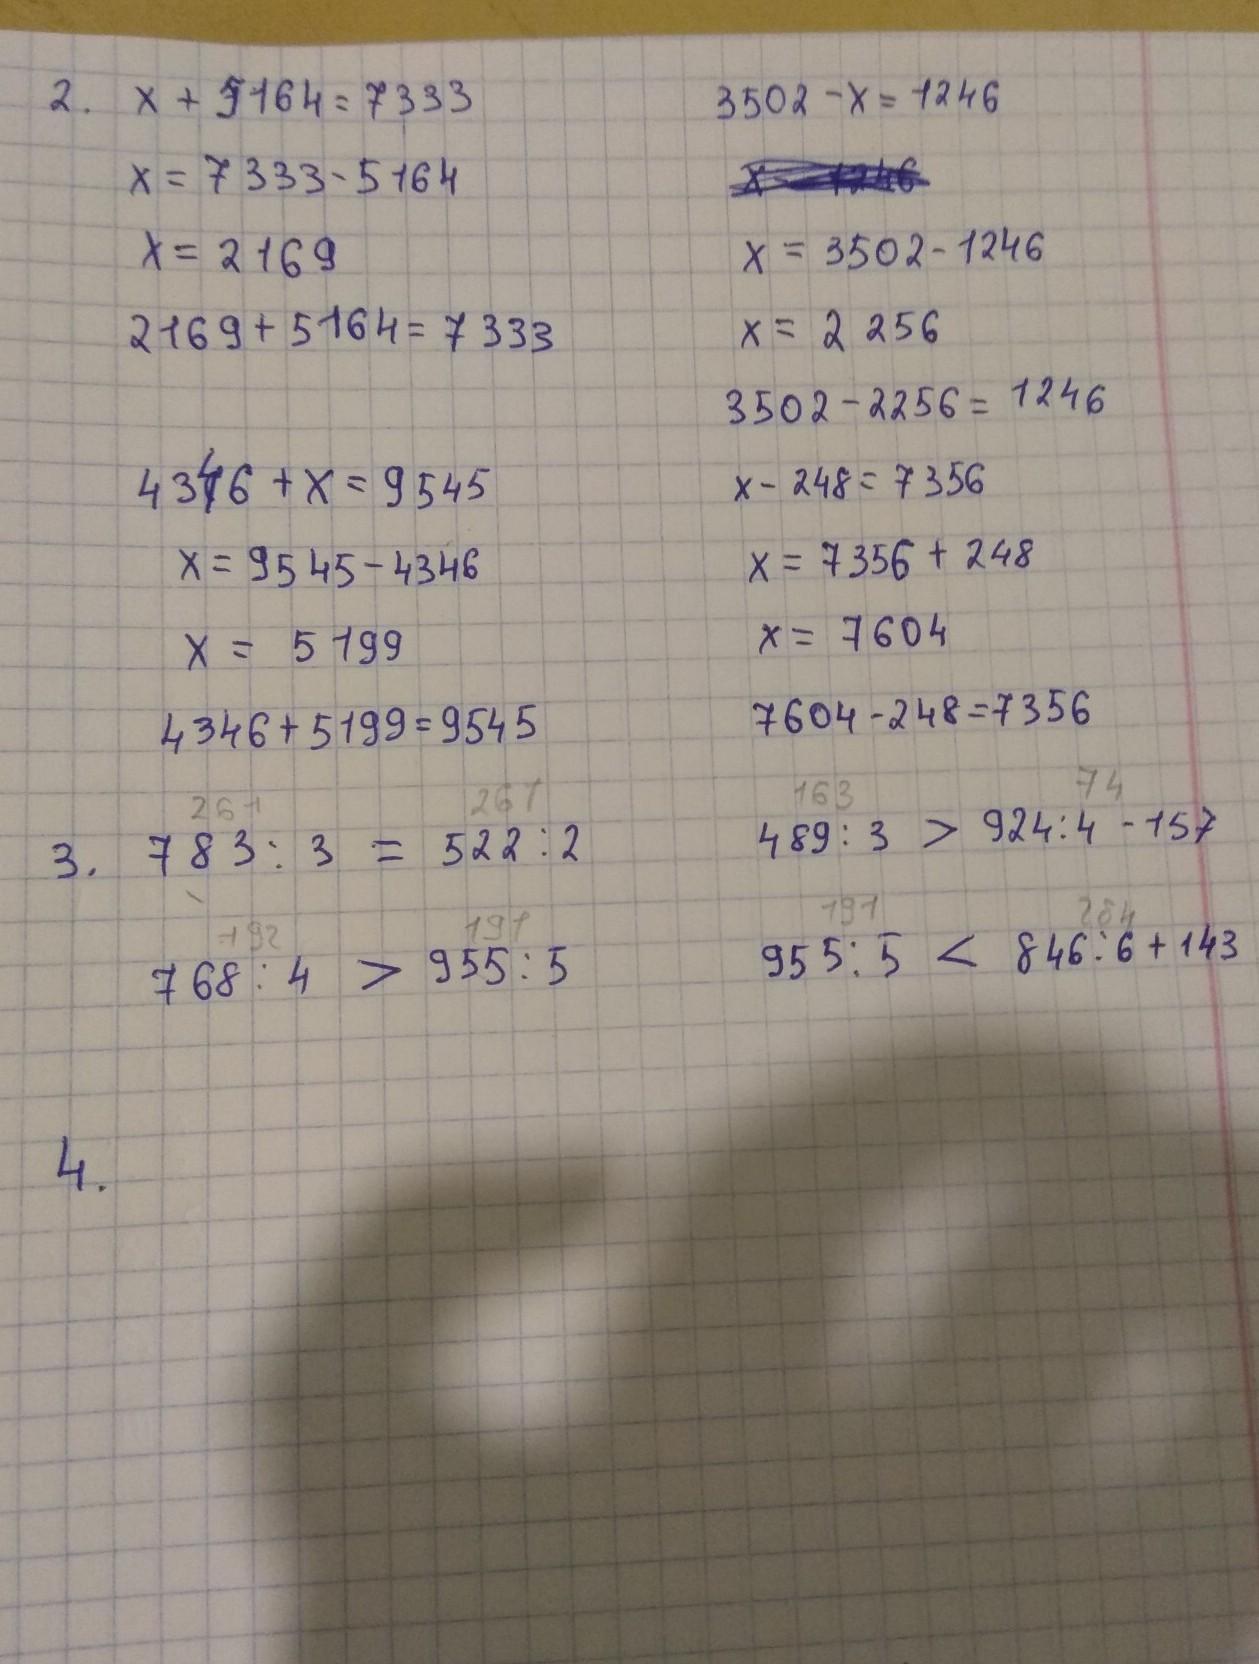 2. x + 5164 = 7333
x = 7333 - 5164
x = 2169
2169 + 5164 = 7333
3502 - x = 1246
x = 3502 - 1246
x = 2256
3502 - 2256 = 1246
4346 + x = 9545
x = 9545 - 4346
x = 5199
4346 + 5199 = 9545
x - 248 = 7356
x = 7356 + 248
x = 7604
7604 - 248 = 7356
261 261
3. 783 : 3 = 522 : 2
163 74
489 : 3 > 924 : 4 - 157
192 191
768 : 4 > 955 : 5
191 284
955 : 5 < 846 : 6 + 143
4.